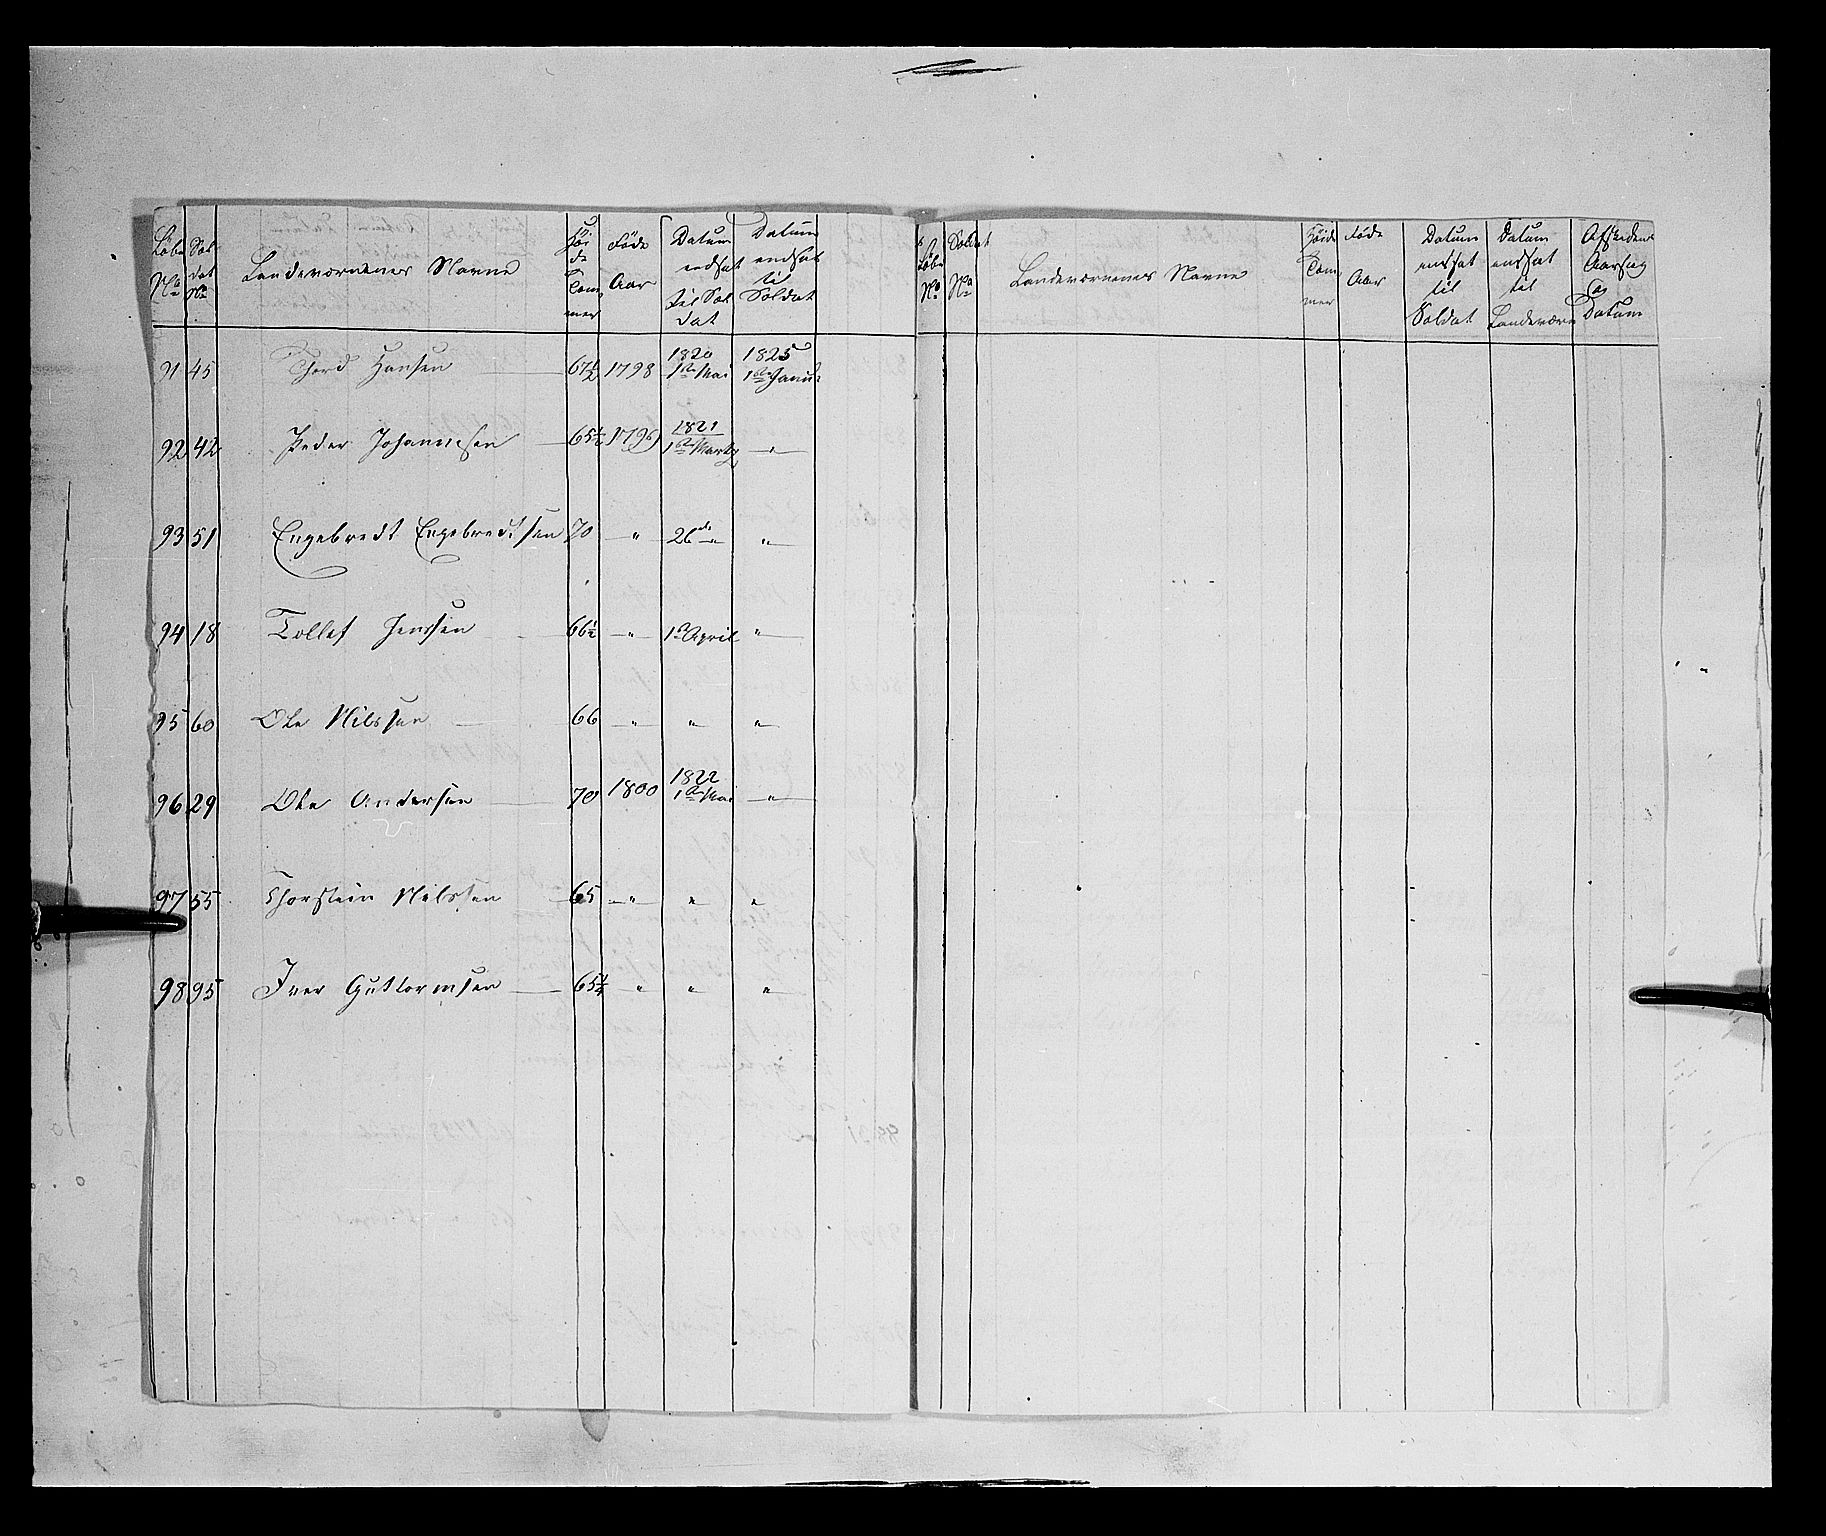 Løbe No Soldat No Landeværnenes Navne Høide Tommer Føde Aar Datum endsat til Soldat Datum endsat til Soldat
91 45 Thord Hansen 67½ 1798 1820 1ste Mai 1825 1ste Janu:
92 42 Peder Johannesen 65½ 1799 1821 1ste Marty "
93 51 Engebredt Engebredtsen 70 " 26de " "
94 18 Tollef Jenssen 66½ " 1ste April "
95 60 Ole Nilssen 66 " " "
96 29 Ole Andersen 70 1800 1822 1ste Mai "
97 55 Thorstein Nilssen 65 " " "
98 95 Iver Guttormsen 65¼ " " "
Løbe No Soldat No Landeværnenes Navne Høide Tommer Føde Aar Datum enssat til Soldat Datum enssat til Landeværn Afskedens Aarsag og Datum